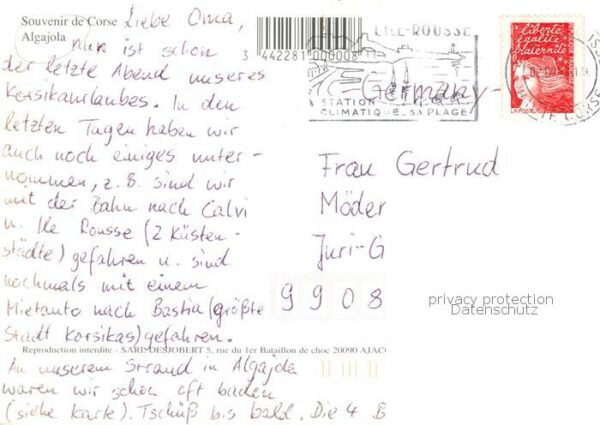 Souvenir de Corse
Algajola
Liebe Oma,
nun ist schon
der letzte Abend unseres
Korsikaurlaubes. In den
letzten Tagen haben wir
auch noch einiges unter-
nommen, z.B. sind wir
mit der Bahn nach Calvi
u. Ile Rousse (2 Küsten-
städte) gefahren u. sind
nochmals mit einem
Mietauto nach Bastia (größte
Stadt Korsikas) gefahren.
Reproduction interdite - SARL DESJOBERT 5, rue du 1er Bataillon de choc 20090 AJAC
An unserem Strand in Algajola
waren wir schon oft baden
(siehe Karte). Tschüß bis bald. Die 4 B
3 442281 000008
ILE-ROUSSE
STATION
CLIMATIQUE, SA PLAGE
Germany
liberté
égalité
fraternité
LA POSTE
HAUTE CORSE
Frau Gertrud
Möder
Juri-G
9908
privacy protection
Datenschutz